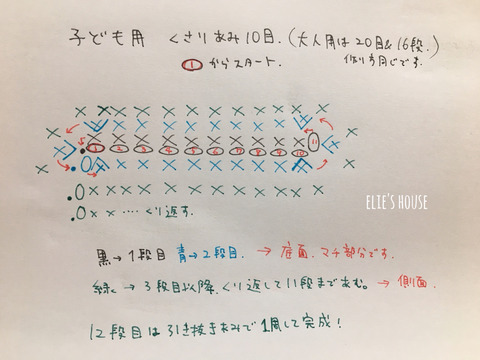 子ども用 くさりあみ10目.(大人用は20目&16段.)
①からスタート. 作り方同じです.
1 2 3 4 5 6 7 8 9 10 11
ELIE'S HOUSE
くり返す.
黒→1段目 青→2段目. → 底面. マチ部分です.
緑→3段目以降、くり返して11段まであむ。→ 側面.
12段目は引き抜きあみで1周して完成!